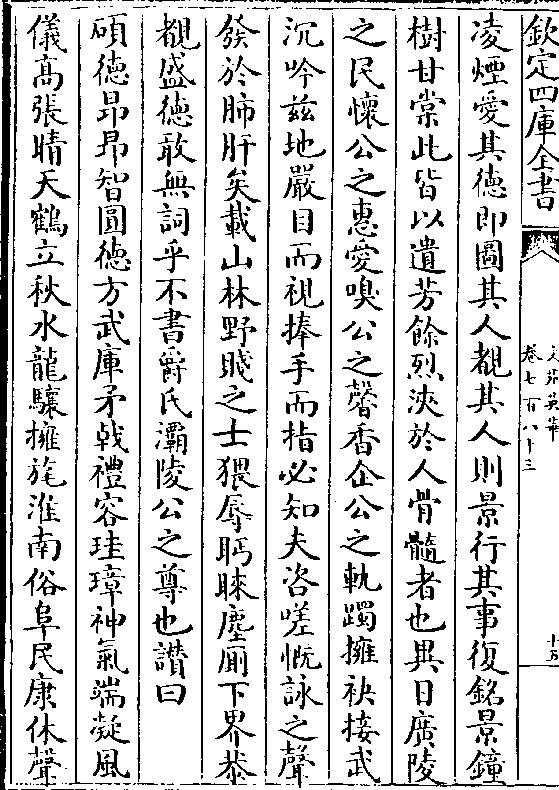 欽定四庫全書
文苑英華
卷七百八十三
十五
凌煙愛其德即圖其人覩其人則景行其事復銘景鐘
樹甘棠此皆以遺芳餘烈浹於人骨髓者也異日廣陵
之民懷公之惠愛嗅公之馨香企公之軌躅擁袂接武
沉吟兹地嚴目而視捧手而指必知夫咨嗟慨詠之聲
發於肺肝矣載山林野賤之士猥辱眄睞塵厠下界恭
覩盛德敢無詞乎不書爵氏灞陵公之尊也讃曰
碩德昂昂智圓德方武庫矛㦸禮容珪璋神氣端凝風
儀高張晴天鶴立秋水龍驤擁旄淮南俗阜民康休聲